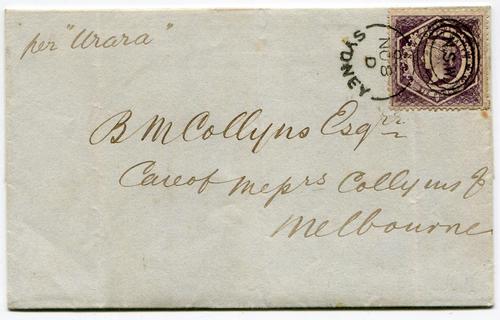 per "Urara"
SYDNEY
NO 8
D
NSW
B M Collyns Esqre
Care of Messrs Collyns &
Melbourne